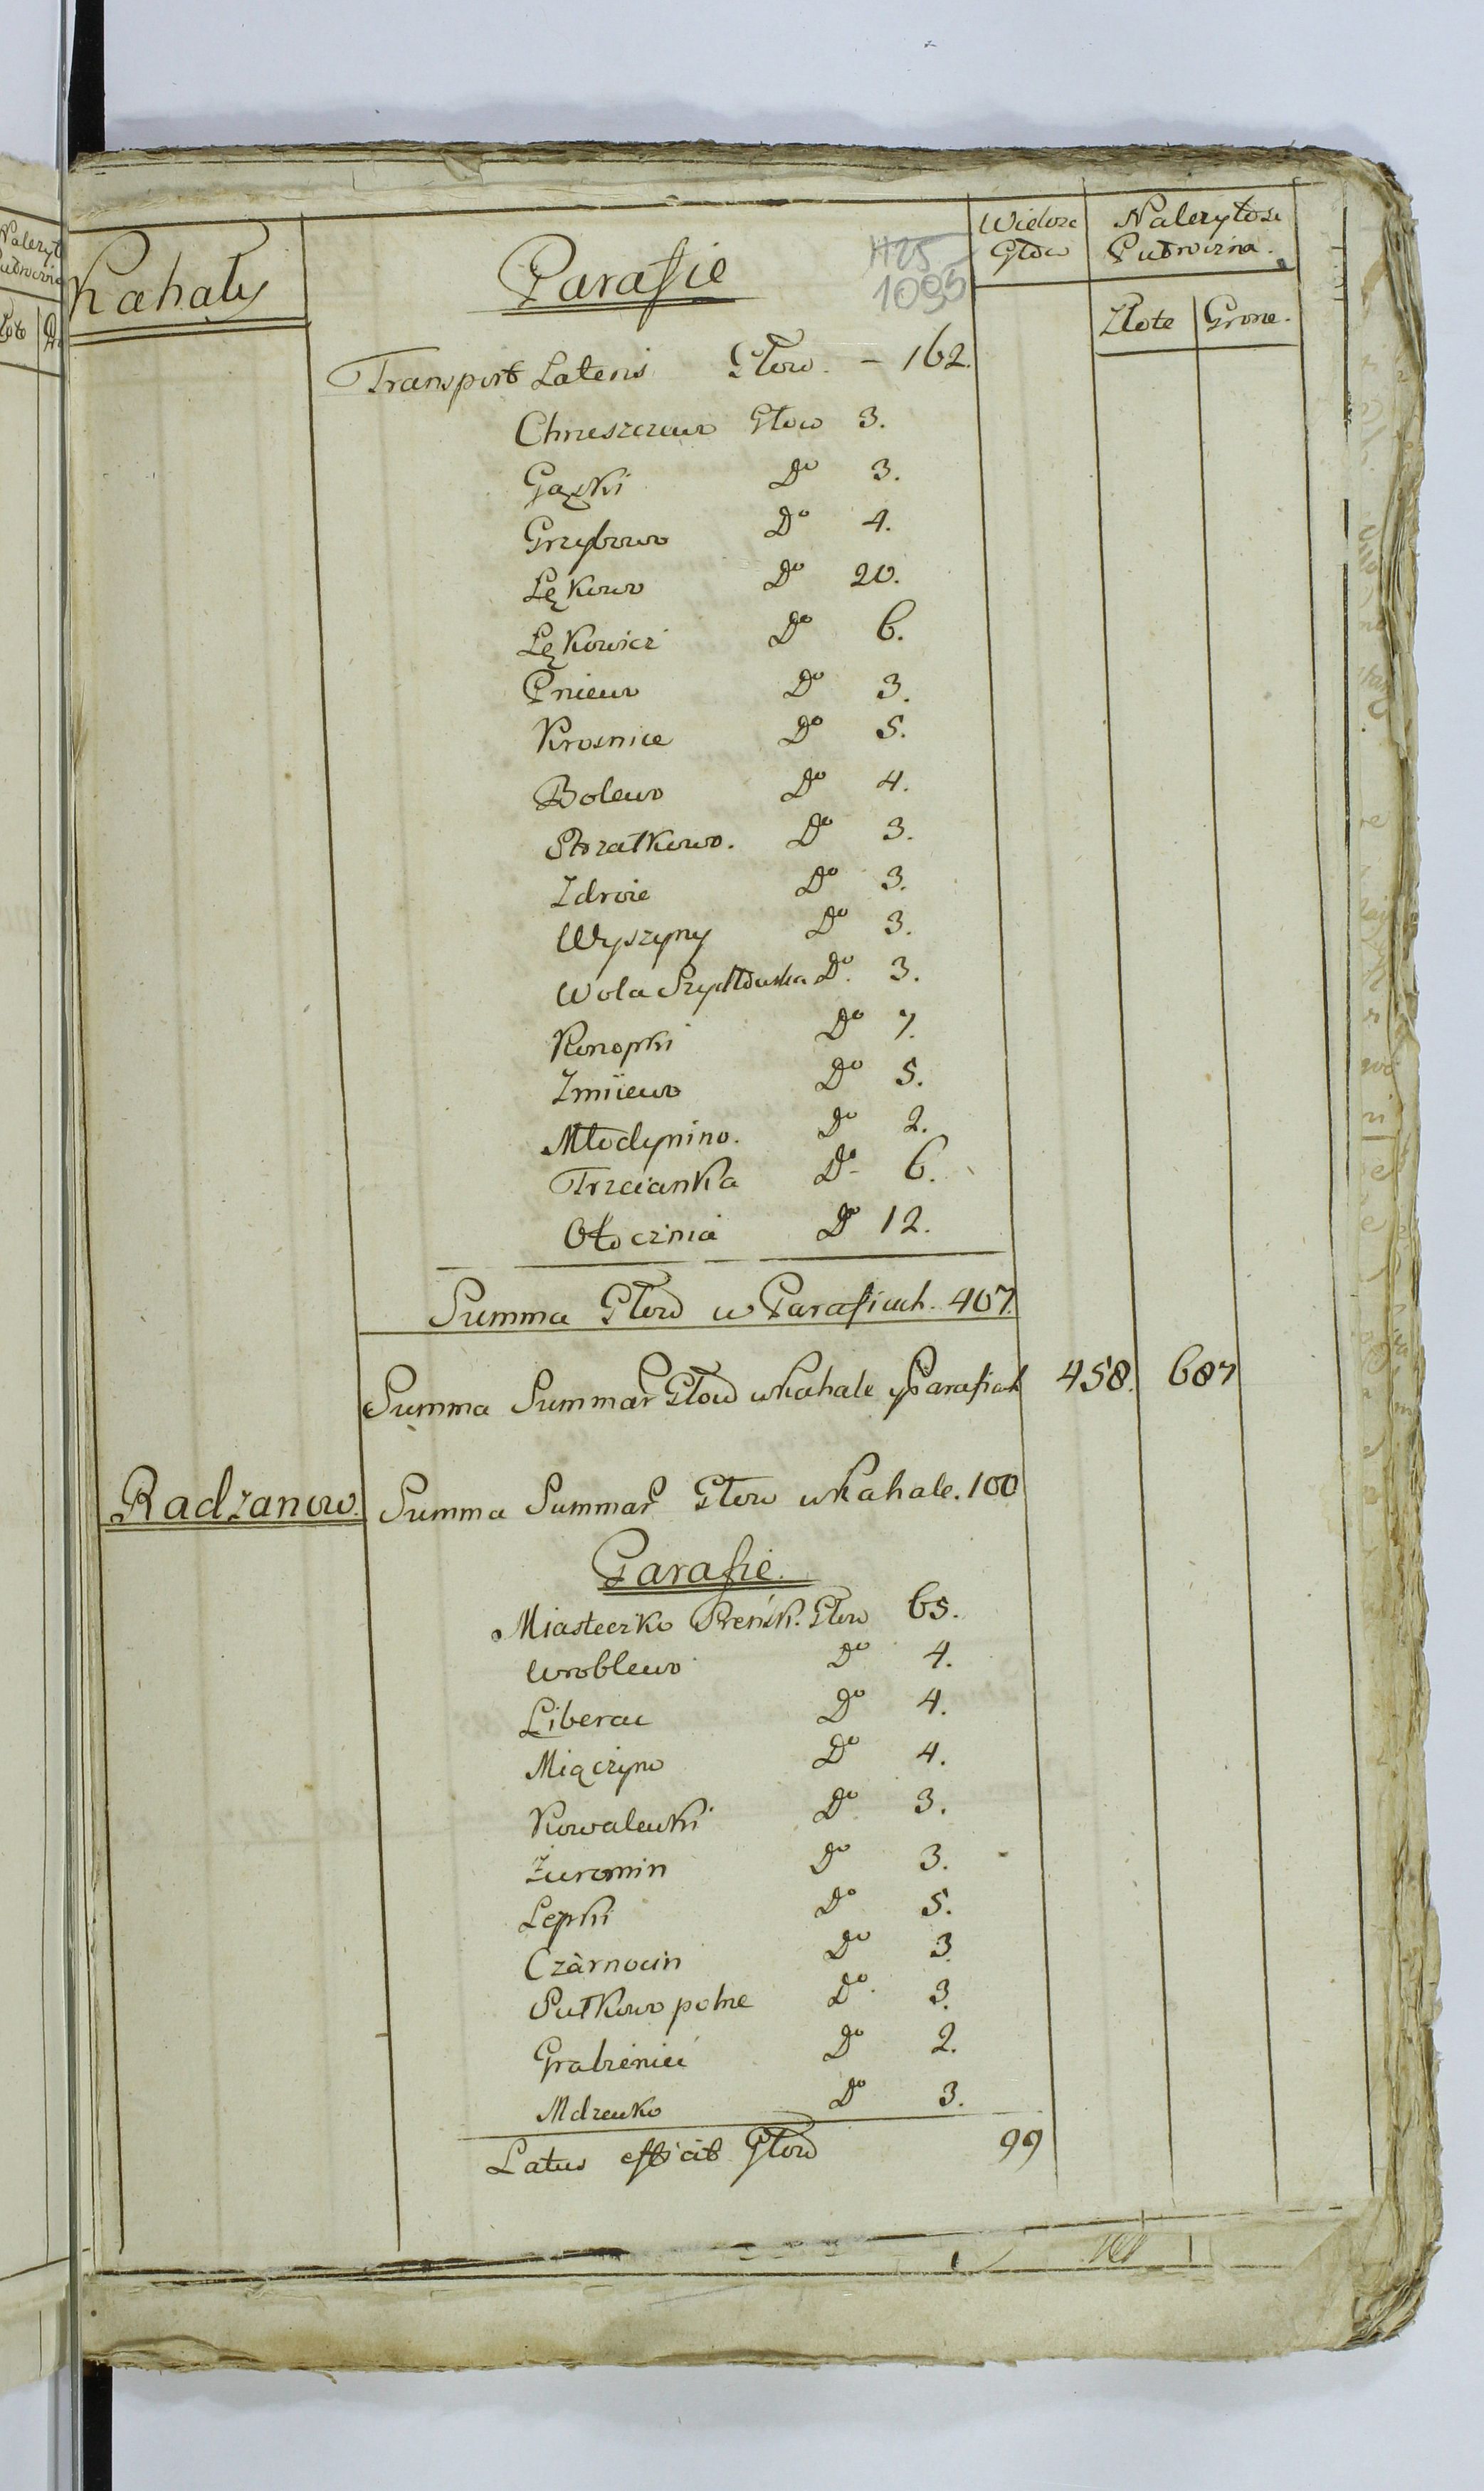 Kahały
Parafie
1125
1095
Wielosc Głow
Nalezytosc Pułroczna.
Złote Grosze.
Transport Lateris Głow. – 162.
Chrzeszczewo Głow 3.
Gązki Do 3.
Grzybowo Do 4.
Lękowo Do 20.
Lękowiez Do 6.
Pniewo Do 3.
Krosnice Do 5.
Bolewo Do 4.
Strzałkowo. Do 3.
Zdroie Do 3.
Wyszyny Do 3.
Wola Szydłowska Do. 3.
Konopki Do 7.
Zmiiewo Do 5.
Młodynino. Do 2.
Trzcianka Do 6.
Otocznia Do 12.
Summa Głow w Parafiach. 407.
Summa Summar Głow w kahale y Parafiach 458. 687
Radzanow. Summa Summar Głow w Kahale. 100
Parafie.
Miasteczko Kreńsk. Głow 65.
Wroblewo Do 4.
Liberac Do 4.
Miączyno Do 4.
Kowalewki Do 3.
Żuromin Do 3.
Lepki Do 5.
Czarnocin Do 3
Sułkowo polne Do. 3.
Grabienice Do 2.
Mdzewko Do 3.
Latus efficit Głow 99